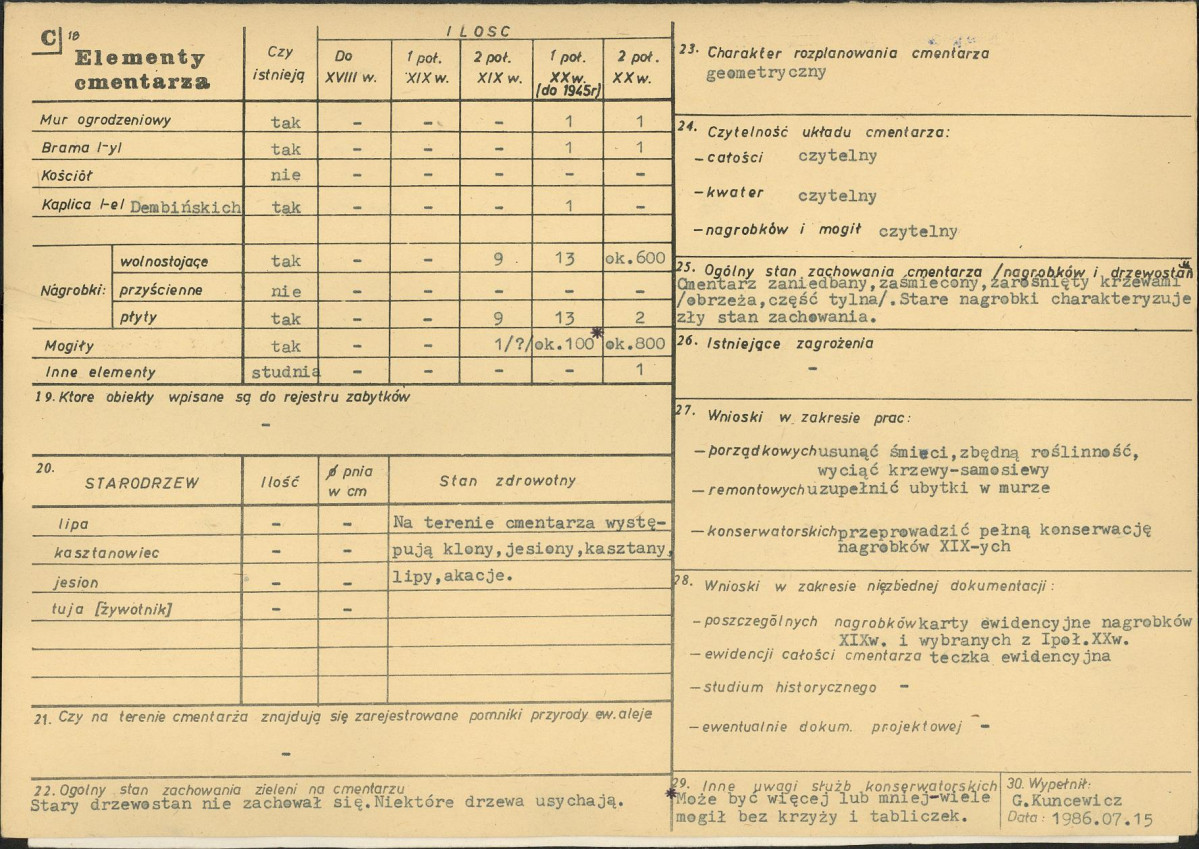 C 18
Elementy cmentarza
Czy istnieją
ILOSC
Do XVIII w.
1 poł. XIX w.
2 poł. XIX w.
1 poł. XX w. (do 1945r)
2 poł. XX w.
Mur ogrodzeniowy tak - - - 1 1
Brama /-y/ tak - - - 1 1
Kościół nie - - - - -
Kaplica /-e/ Dembińskich tak - - - 1 -
Nagrobki: wolnostojące tak - - 9 13 ok.600
przyścienne nie - - - - -
płyty tak - - 9 13 2
Mogiły tak - - 1/?/ ok.100* ok.800
Inne elementy studnia - - - - 1
19. Ktore obiekty wpisane są do rejestru zabytków
-
20.
STARODRZEW Ilość ø pnia w cm Stan zdrowotny
lipa - - Na terenie cmentarza wystę-
kasztanowiec - - pują klony,jesiony,kasztany,
jesion - - lipy,akacje.
tuja [żywotnik] - -
21. Czy na terenie cmentarża znajdują się zarejestrowane pomniki przyrody ew. aleje
-
22. Ogolny stan zachowania zieleni na cmentarzu
Stary drzewostan nie zachował się.Niektóre drzewa usychają.
23. Charakter rozplanowania cmentarza
geometryczny
24. Czytelność układu cmentarza:
- całości czytelny
- kwater czytelny
- nagrobków i mogił czytelny
25. Ogólny stan zachowania cmentarza /nagrobków i drzewostan
Cmentarz zaniedbany,zaśmiecony,zarośnięty krzewami
/obrzeża,część tylna/.Stare nagrobki charakteryzuje
zły stan zachowania.
26. Istniejące zagrożenia
-
27. Wnioski w zakresie prac:
- porządkowych usunąć śmieci,zbędną roślinność,
wyciąć krzewy-samosiewy
- remontowych uzupełnić ubytki w murze
- konserwatorskich przeprowadzić pełną konserwację
nagrobków XIX-ych
28. Wnioski w zakresie niezbednej dokumentacji:
- poszczególnych nagrobków karty ewidencyjne nagrobków
XIXw. i wybranych z Ipoł.XXw.
- ewidencji całości cmentarza teczka ewidencyjna
- studium historycznego -
- ewentualnie dokum. projektowej -
29. Inne uwagi służb konserwatorskich
*Może być więcej lub mniej-wiele
mogił bez krzyży i tabliczek.
30. Wypełnił:
G.Kuncewicz
Data: 1986.07.15